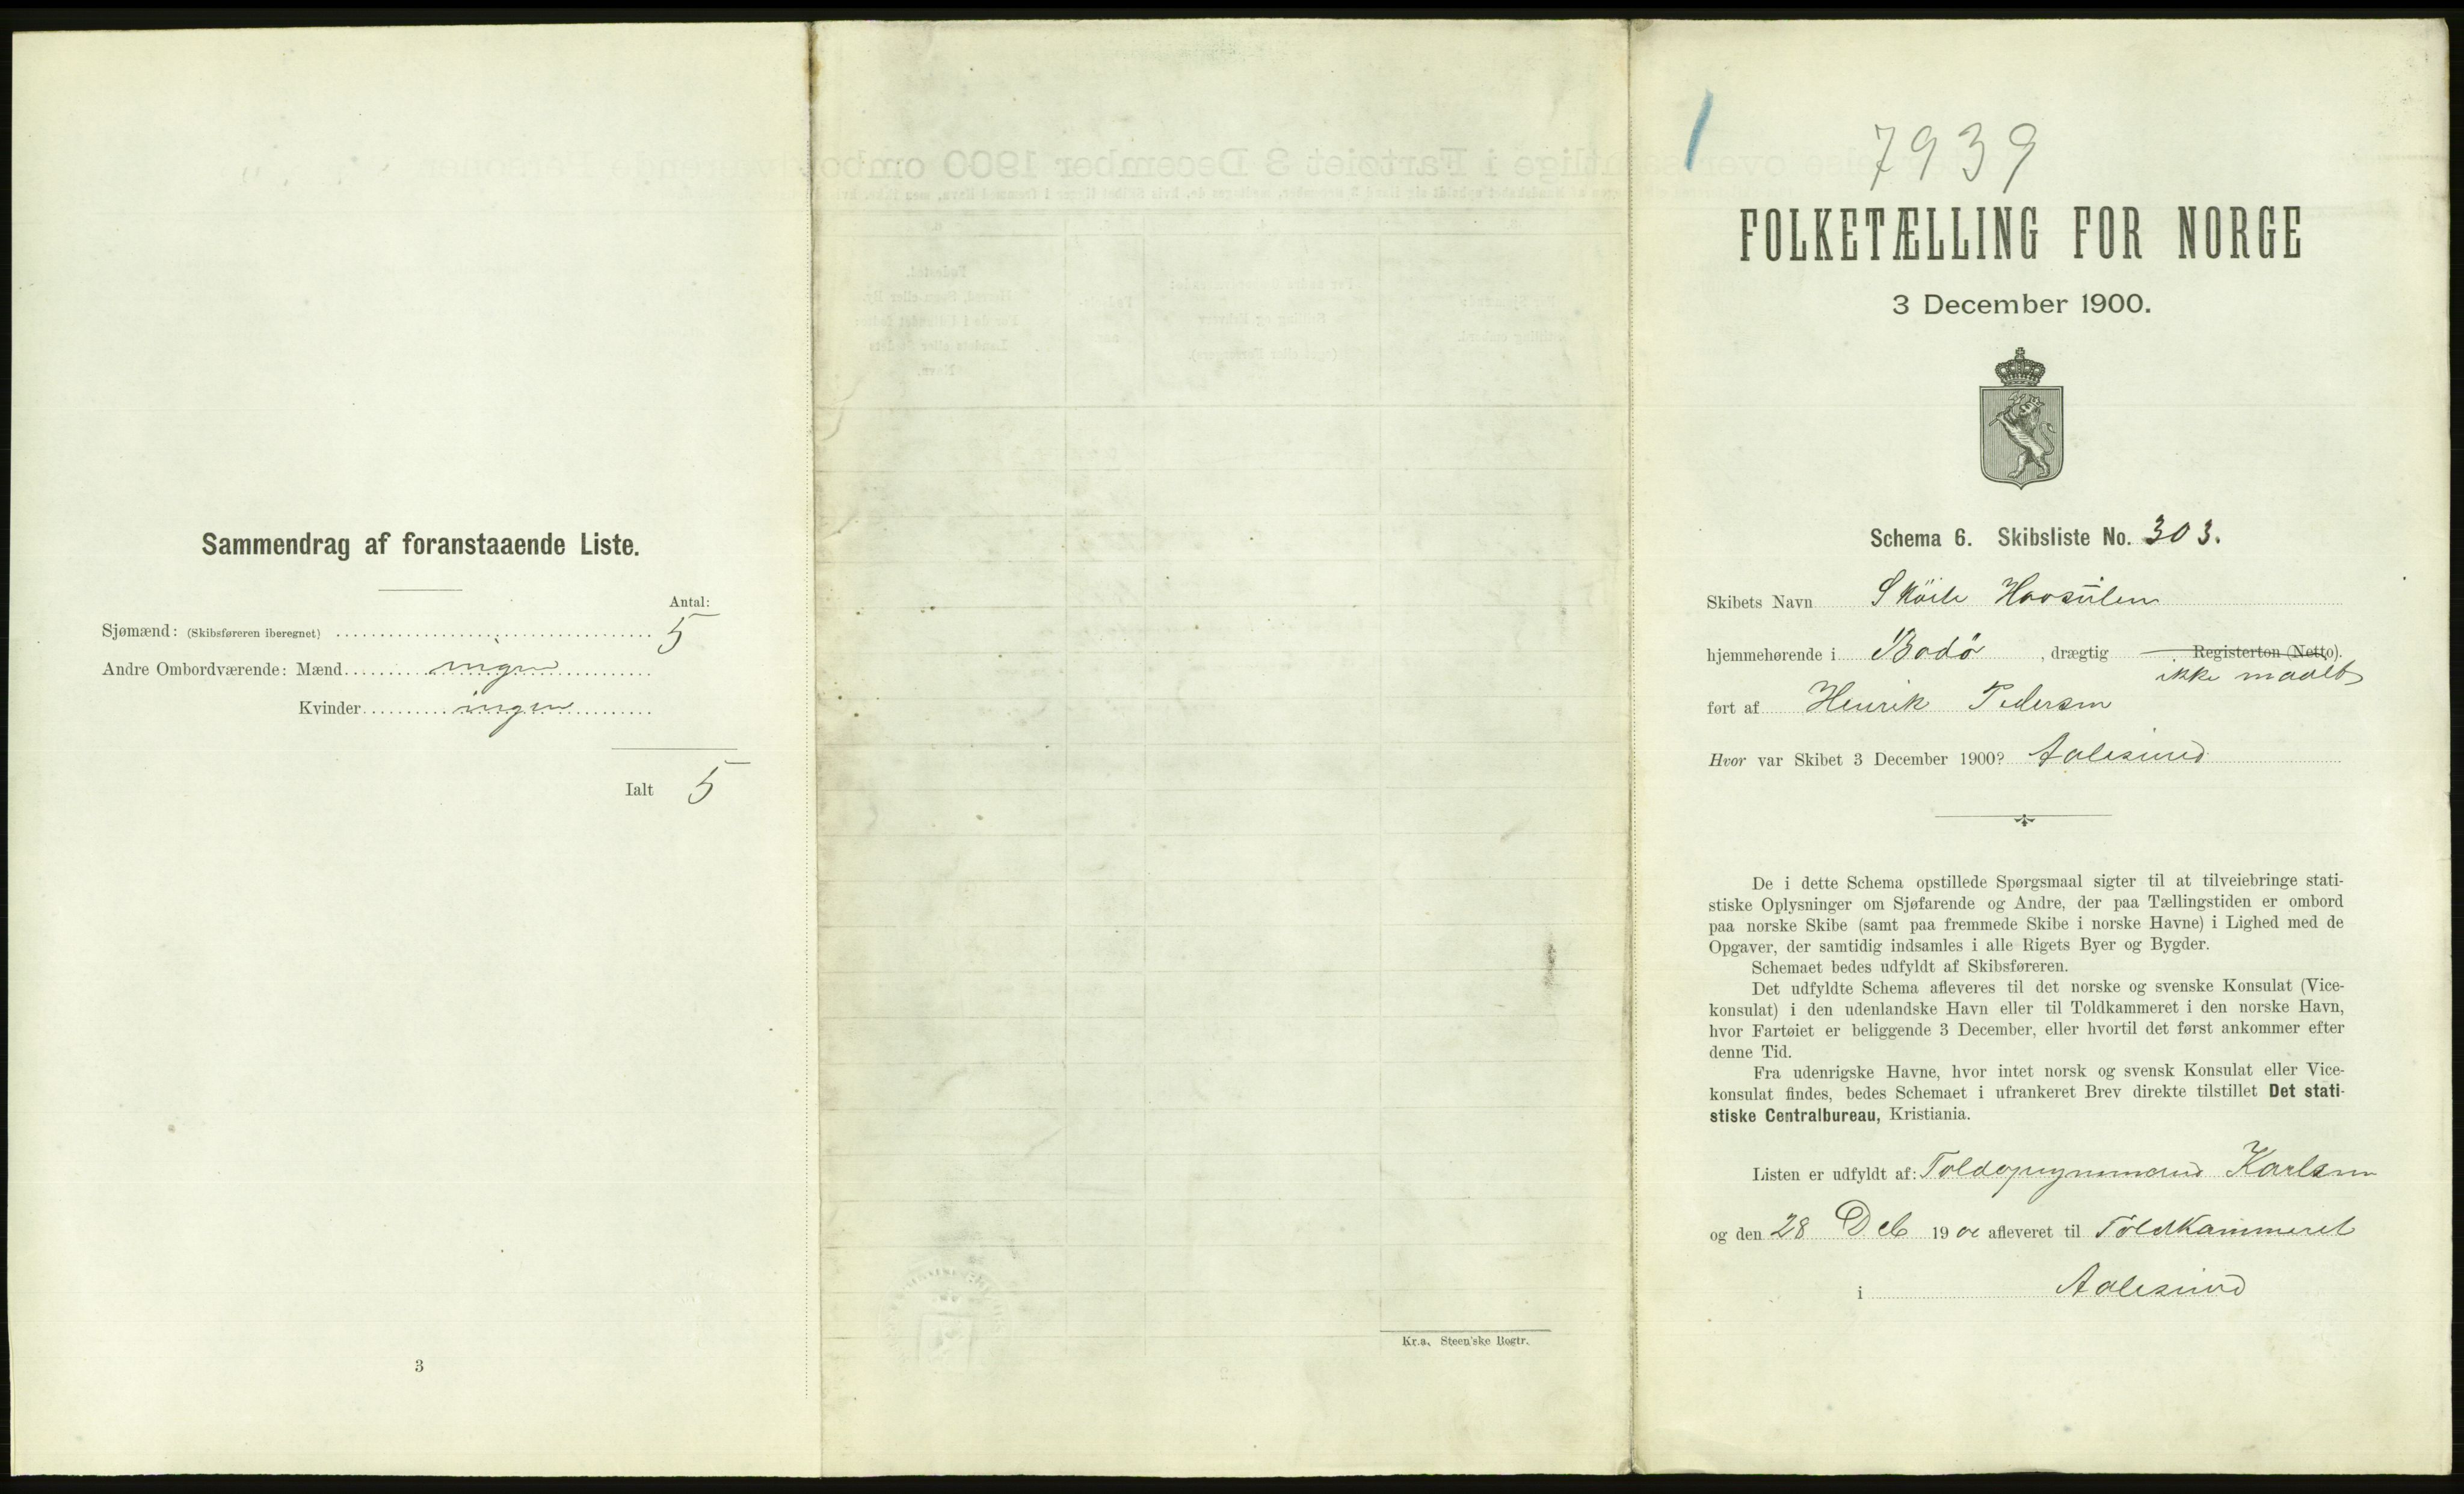 Sammendrag af foranstaaende Liste.
Antal:
Sjømænd: (Skibsføreren iberegnet) 5
Andre Ombordværende: Mænd ingen
Kvinder ingen
Ialt 5
3
Kr.a. Steen'ske Bogtr.
1
7939
FOLKETÆLLING FOR NORGE
3 December 1900.
Schema 6. Skibsliste No. 303.
Skibets Navn Havsulen
hjemmehørende i Bodö, drægtig Registerton (Netto).
ikke maalt
ført af Henrik Pedersen
Hvor var Skibet 3 December 1900? Aalesund
De i dette Schema opstillede Spørgsmaal sigter til at tilveiebringe stati-
stiske Oplysninger om Sjøfarende og Andre, der paa Tællingstiden er ombord
paa norske Skibe (samt paa fremmede Skibe i norske Havne) i Lighed med de
Opgaver, der samtidig indsamles i alle Rigets Byer og Bygder.
Schemaet bedes udfyldt af Skibsføreren.
Det udfyldte Schema afleveres til det norske og svenske Konsulat (Vice-
konsulat) i den udenlandske Havn eller til Toldkammeret i den norske Havn,
hvor Fartøiet er beliggende 3 December, eller hvortil det først ankommer efter
denne Tid.
Fra udenrigske Havne, hvor intet norsk og svensk Konsulat eller Vice-
konsulat findes, bedes Schemaet i ufrankeret Brev direkte tilstillet Det stati-
stiske Centralbureau, Kristiania.
Listen er udfyldt af: Karlsen
og den 28 Deb 1900 afleveret til Toldkammeret
i Aalesund